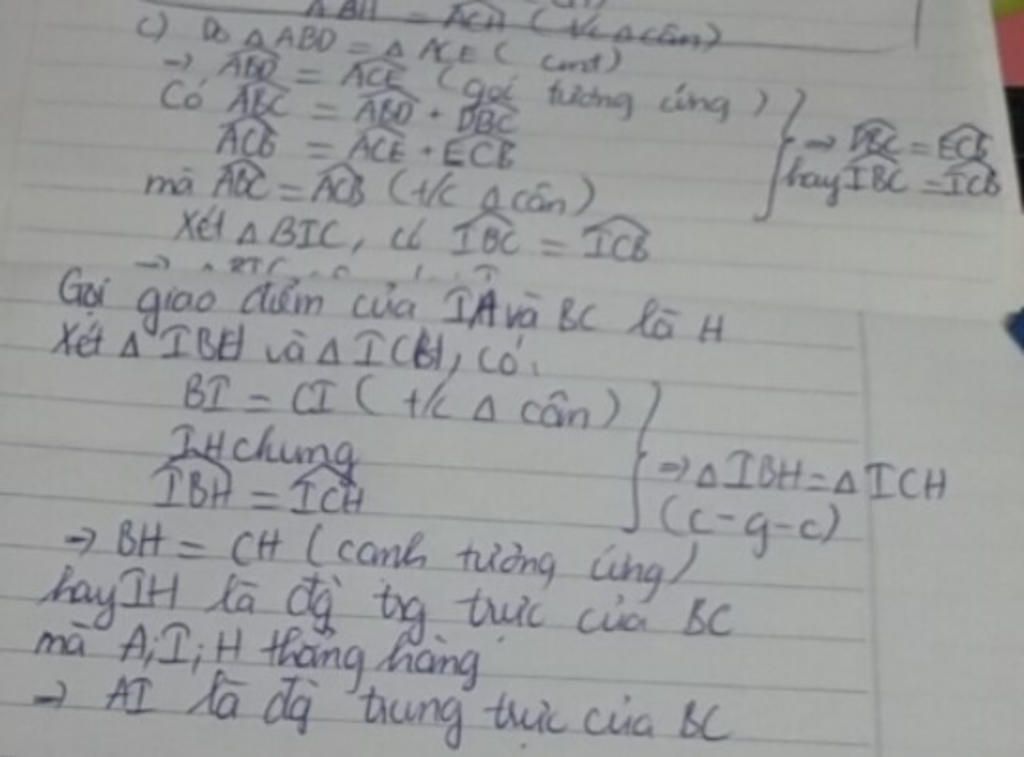 = ACH (t/c Δ cân)
c) Do Δ ABD = Δ ACE ( cmt)
→ ABD = ACE (góc tương ứng)
Có ABC = ABD + DBC
ACB = ACE + ECB
mà ABC = ACB (t/c Δ cân)
→ DBC = ECB
hay IBC = ICB
Xét Δ BIC, có IBC = ICB
Gọi giao điểm của IA và BC là H
Xét Δ IBH và Δ ICH, có:
BI = CI ( t/c Δ cân)
IH chung
IBH = ICH
→ Δ IBH = Δ ICH
(c-g-c)
→ BH = CH (cạnh tương ứng)
hay IH là đg trg trực của BC
mà A, I, H thẳng hàng
→ AI là đg trung trực của BC